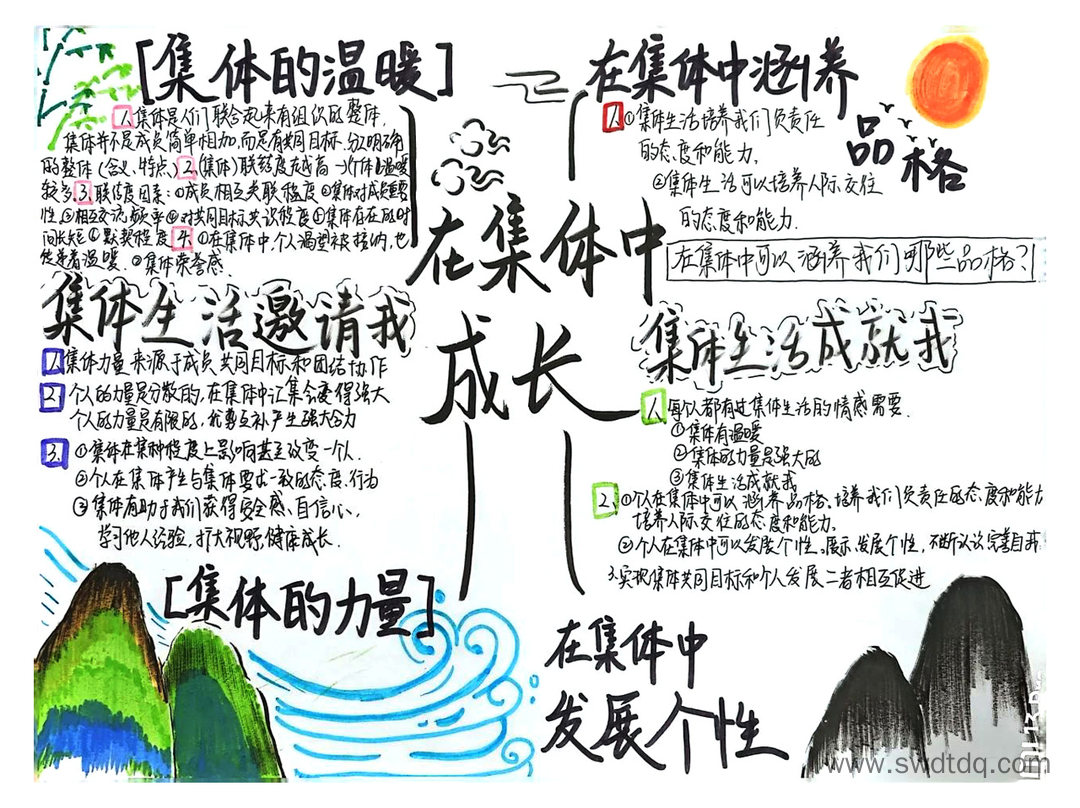 [集体的温暖]
1. 集体是人们联合起来有组织的整体,
集体并不是成员简单相加,而是有共同目标、分工明确
的整体(含义、特点) 2.(集体)联结度越高→个体温暖
较多. 3. 联结度因素:①成员相互关联程度 ②集体对成员重要
性 ③相互交流频率 ④对共同目标共识程度 ⑤集体存在的时
间长短 ⑥默契程度 4. ①在集体中,个人渴望被接纳,也
温暖. ②集体荣誉感.
集体生活邀请我
1. 集体力量来源于成员共同目标和团结协作
2. 个人的力量是分散的,在集体中汇集会变得强大
个人的力量是有限的,优势互补产生强大合力
3. ①集体在某种程度上影响甚至改变一个人.
②个人在集体产生与集体要求一致的态度、行为
③集体有助于我们获得安全感、自信心、
学习他人经验,扩大视野,健康成长.
[集体的力量]
在集体中
成长
在集体中涵养
品格
1. ①集体生活培养我们负责任
的态度和能力.
②集体生活可以培养人际交往
的态度和能力.
在集体中可以涵养我们哪些品格?
集体生活成就我
1. 每个人都有过集体生活的情感需要.
①集体有温暖
②集体的力量是强大的
③集体生活成就我
2. ①个人在集体中可以涵养品格、培养我们负责任的态度和能力
培养人际交往的态度和能力.
②个人在集体中可以发展个性。展示、发展个性,不断认识完善自我
3.实现集体共同目标和个人发展二者相互促进
在集体中
发展个性
www.swdtdq.com